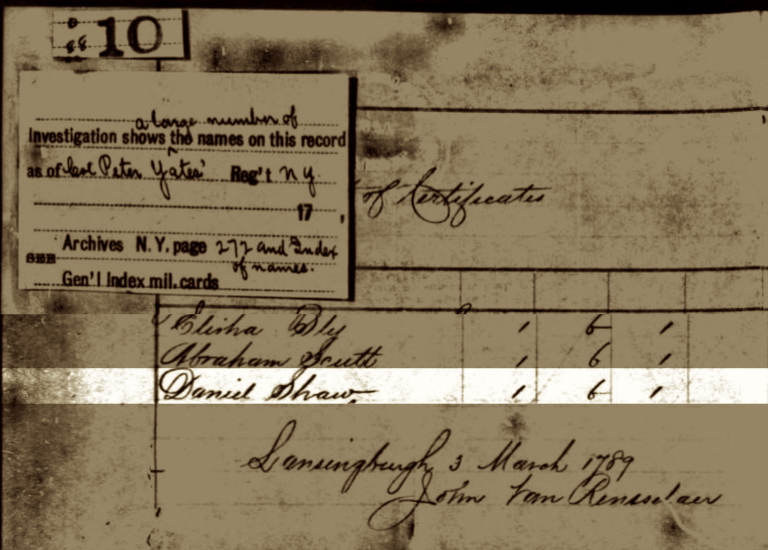 10
a large number of
Investigation shows the names on this record
as of Col Peter Yates' Reg't N Y
17 ,
Archives N.Y. page 272 and Index
SEE of names.
Gen'l Index mil. cards
of Certificates
Elisha Bly 1 6 1
Abraham Scutt 1 6 1
Daniel Shaw 1 6 1
Lansingburgh 3 March 1789
John Van Rensselaer